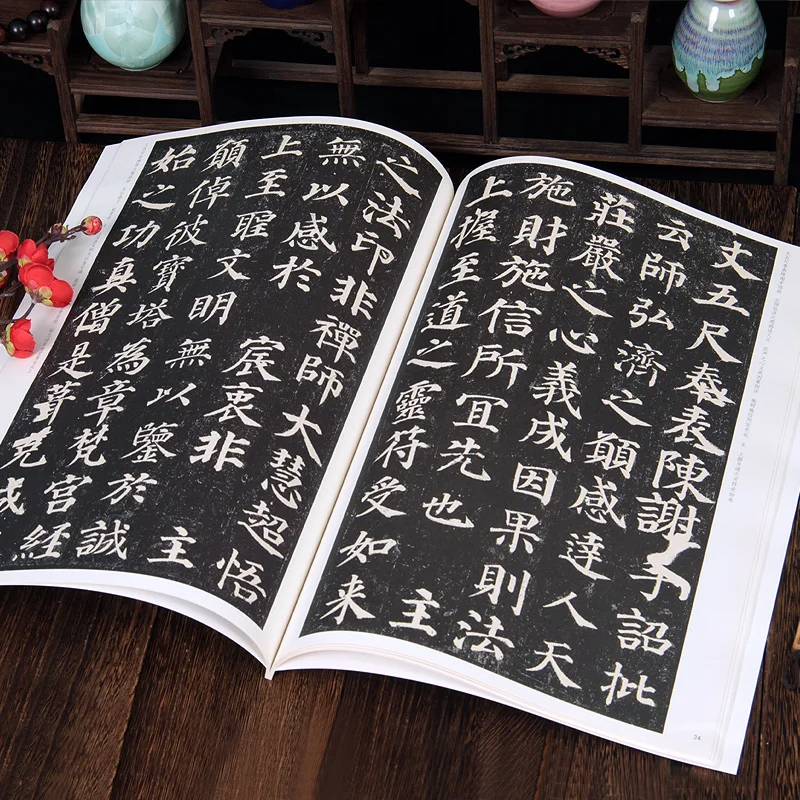 丈五尺奉表陳謝手詔批
云師弘濟之願感達人天
莊嚴之心義成因果則法
施財施信所冝先也 主
上握至道之靈符受如来
24
之法印非禪師大慧超悟
無以感於 宸衷非 主
上至聖文明無以鑒於誠
願倬彼寶塔為章梵宮經
始之功真僧是葺克成